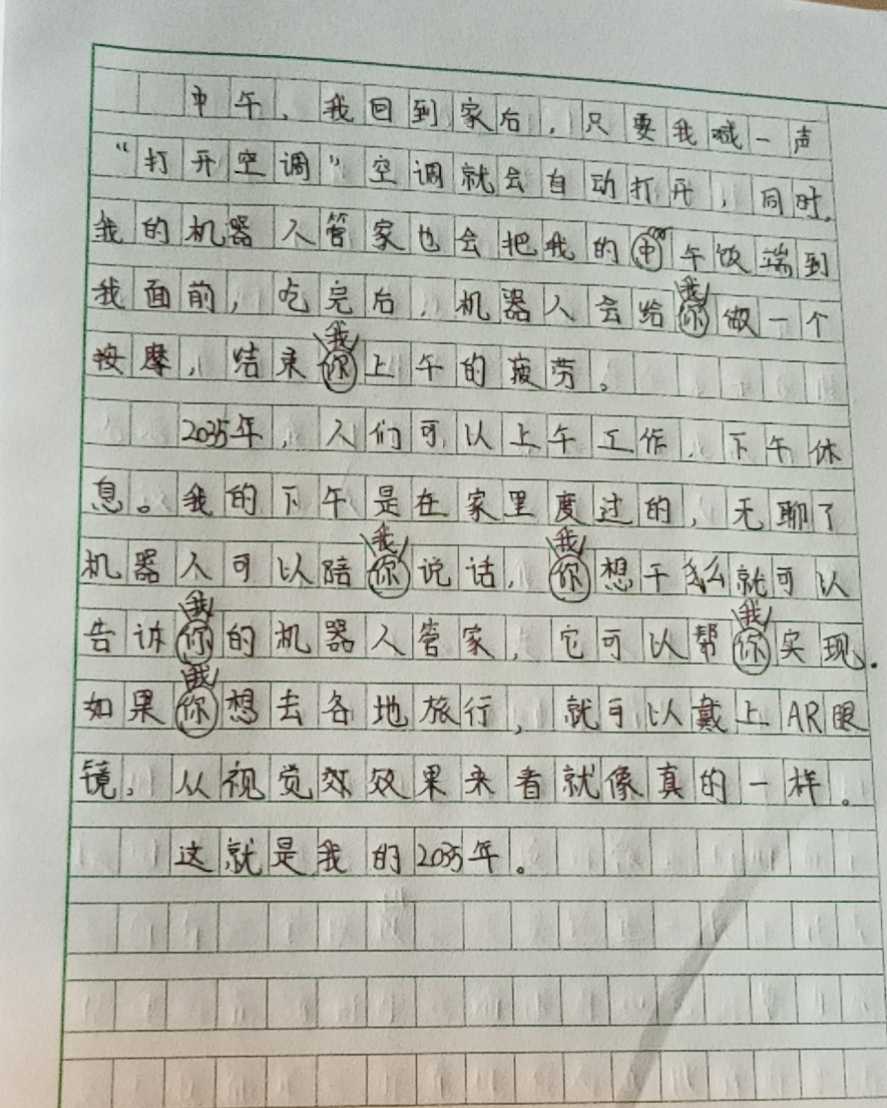 中午，我回到家后，只要我喊一声
“打开空调”空调就会自动打开，同时，
我的机器人管家也会把我的中午饭端到
我面前，吃完后，机器人会给你我做一个
按摩，结束你我上午的疲劳。
2035年，人们可以上午工作，下午休
息。我的下午是在家里度过的，无聊了
机器人可以陪你我说话，你我想干什么就可以
告诉你我的机器人管家，它可以帮你我实现。
如果你我想去各地旅行，就可以戴上AR眼
镜，从视觉效效果来看就像真的一样。
这就是我的2035年。